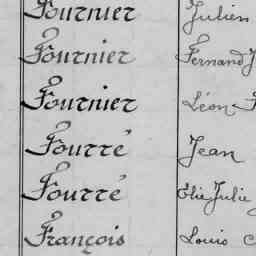 Fournier Julien
Fournier Fernand J
Fournier Léon
Fourré Jean
Fourré Elie Julie
François Louis